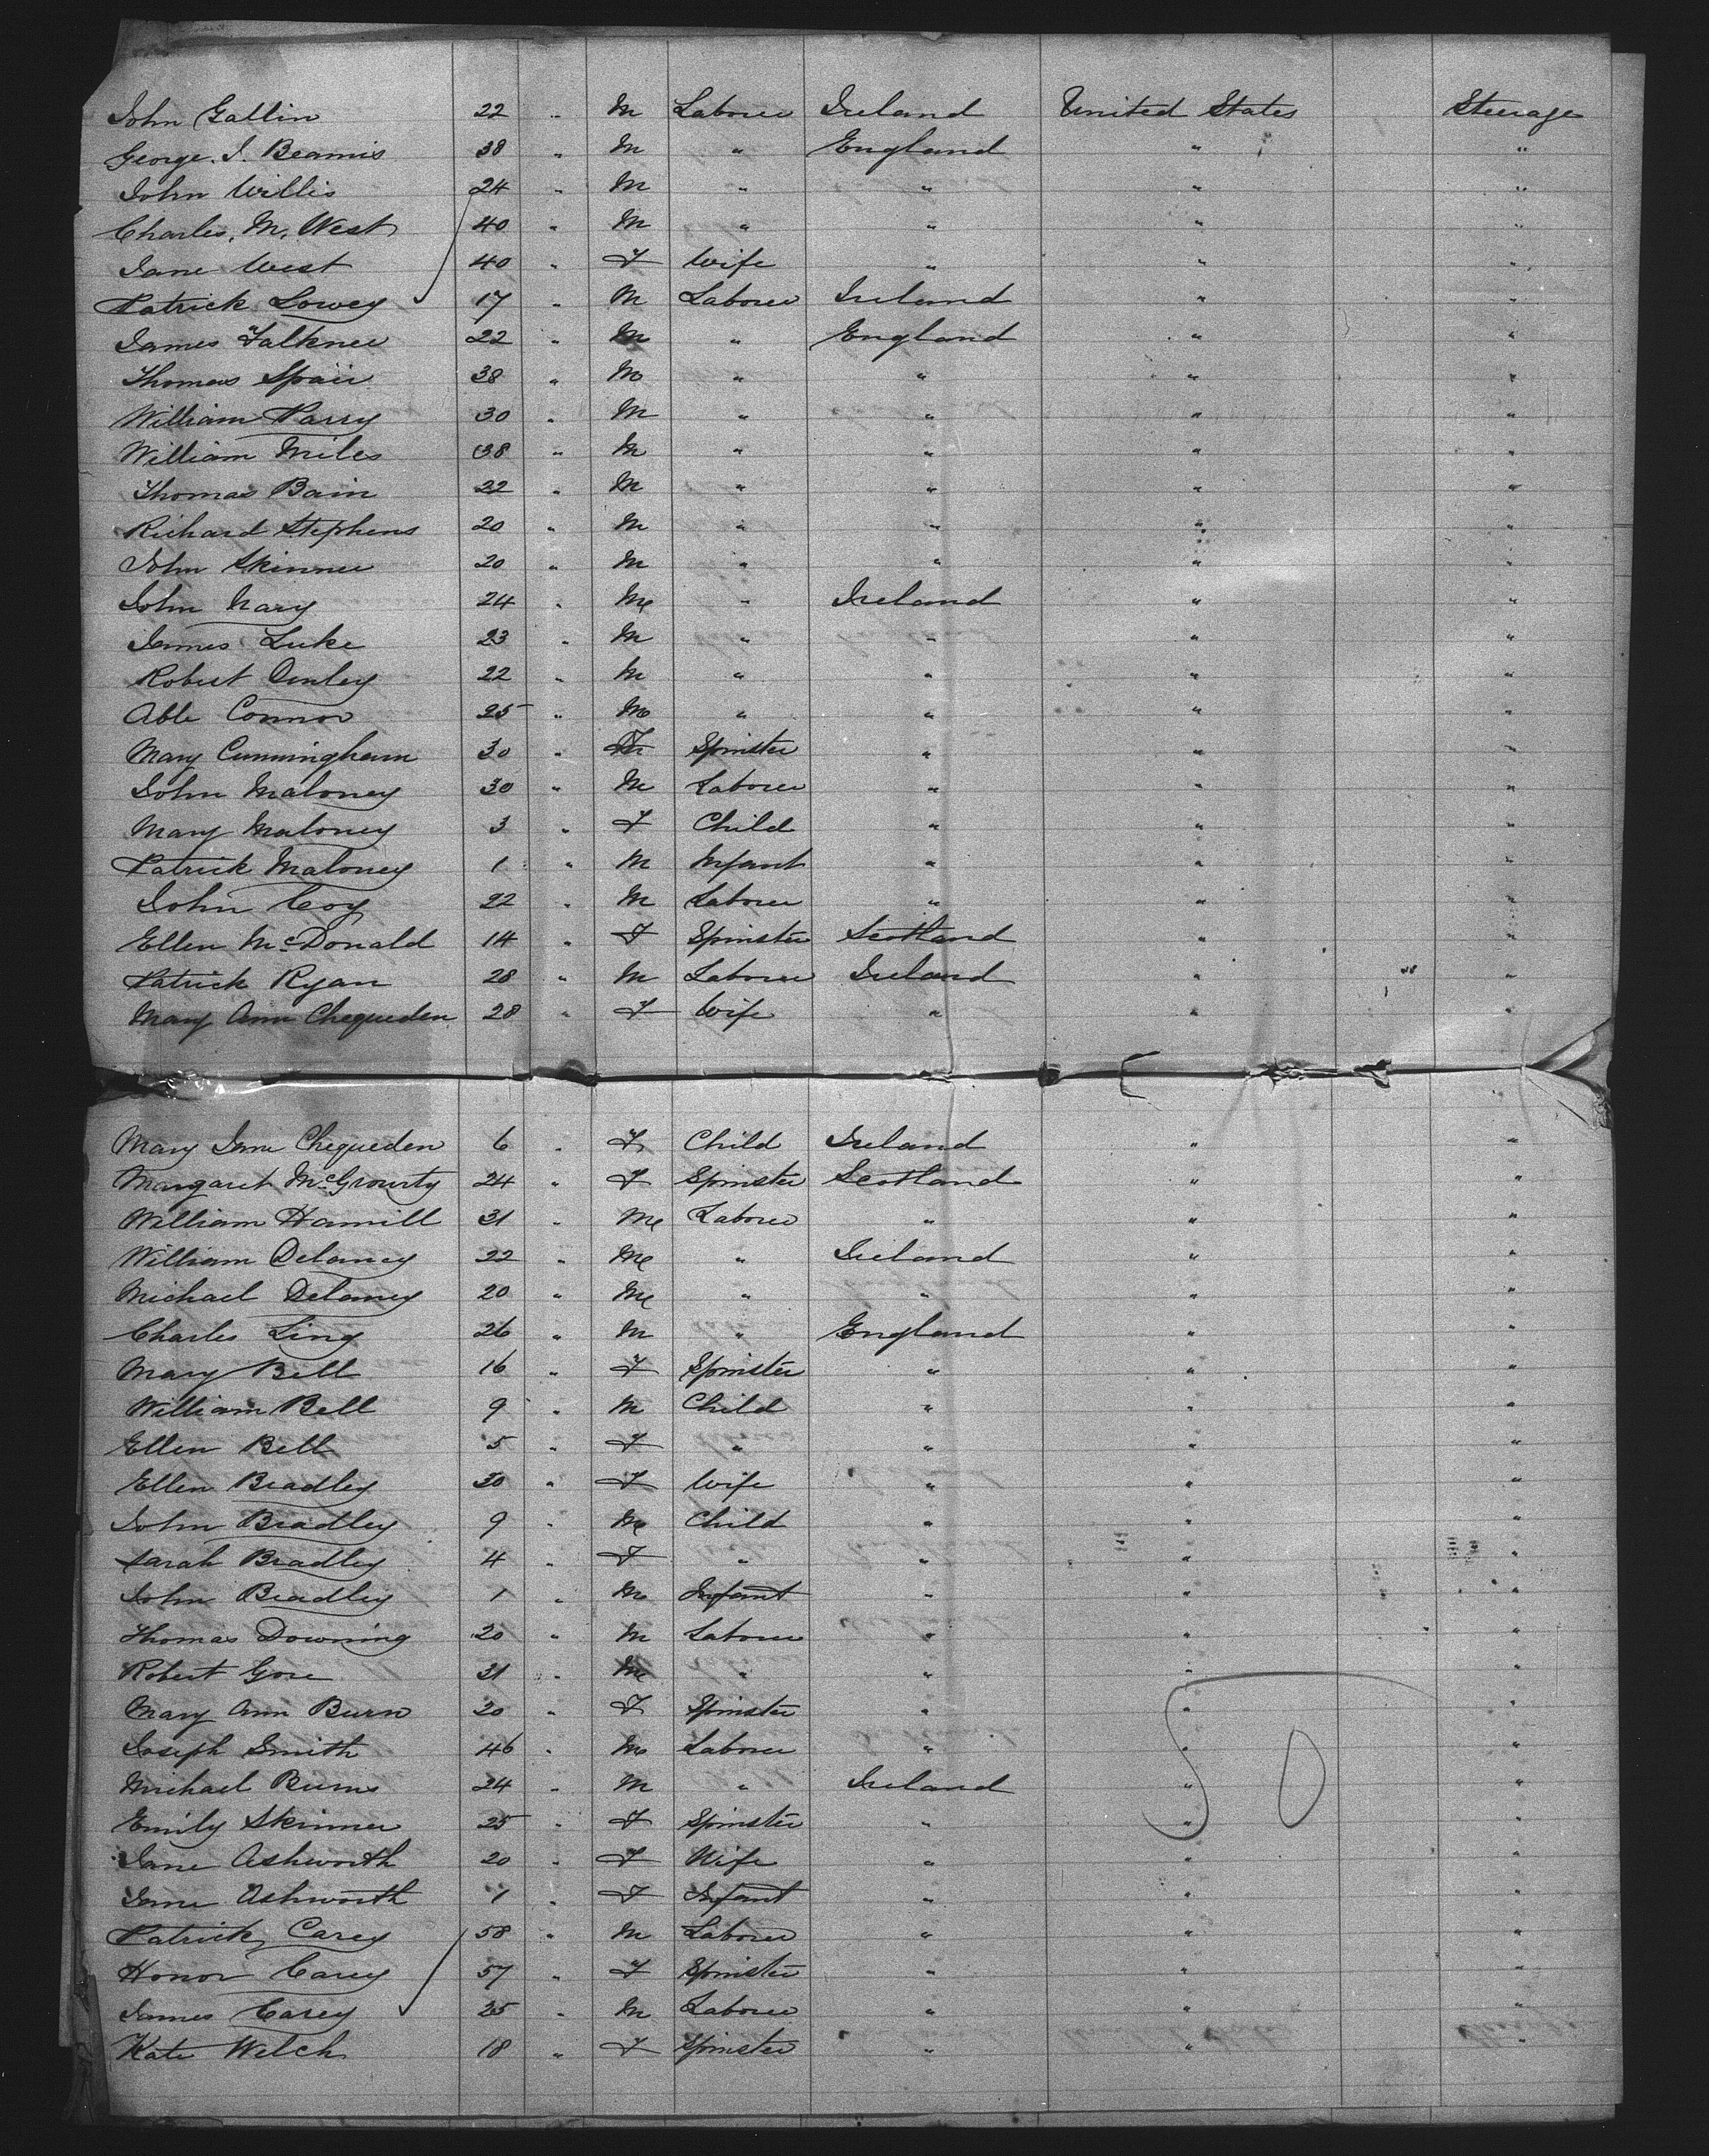 John Gallin 22 " M Laborer Ireland United States Steerage
George. J. Beamis 38 " M " England " "
John Willis 24 " M " " " "
Charles. M. West 40 " M " " " "
Jane West 40 " F Wife " " "
Patrick Lowey 17 " M Laborer Ireland " "
James Falkner 22 " M " England " "
Thomas Spair 38 " M " " " "
William Parry 30 " M " " " "
William Miles 38 " M " " " "
Thomas Bain 22 " M " " " "
Richard Stephens 20 " M " " " "
John Skinner 20 " M " " " "
John Nary 24 " M " Ireland " "
James Luke 23 " M " " " "
Robert 22 " M " " " "
Able Connor 25 " M " " " "
Mary Cunningham 30 " F Spinster " " "
John Maloney 30 " M Laborer " " "
Mary Maloney 3 " F Child " " "
Patrick Maloney 1 " M Infant " " "
John Coy 22 " M Laborer " " "
Ellen McDonald 14 " F Spinster Scotland " "
Patrick Ryan 28 " M Laborer Ireland " "
Mary Ann Chegueden 28 " F Wife " " "
Mary Jane Chegueden 6 " F Child Ireland " "
Margaret McGrourty 24 " F Spinster Scotland " "
William Hamill 31 " M Laborer " " "
William Delaney 22 " M " Ireland " "
Michael Delaney 20 " M " " " "
Charles Ling 26 " M " England " "
Mary Bell 16 " F Spinster " " "
William Bell 9 " M Child " " "
Ellen Bell 5 " F " " " "
Ellen Bradley 30 " F Wife " " "
John Bradley 9 " M Child " " "
Sarah Bradley 4 " F " " " "
John Bradley 1 " M Infant " " "
Thomas Downing 20 " M Laborer " " "
Robert Gore 31 " M " " " "
Mary Ann Burn 20 " F Spinster " " "
Joseph Smith 46 " M Laborer " " "
Michael Burns 24 " M " Ireland " "
Emily Skinner 25 " F Spinster " " "
Jane Ashworth 20 " F Wife " " "
Jane Ashworth 1 " F Infant " " "
Patrick Carey 58 " M Laborer " " "
Honor Carey 57 " F Spinster " " "
James Carey 25 " M Laborer " " "
Kate Welch 18 " F Spinster " " "
50